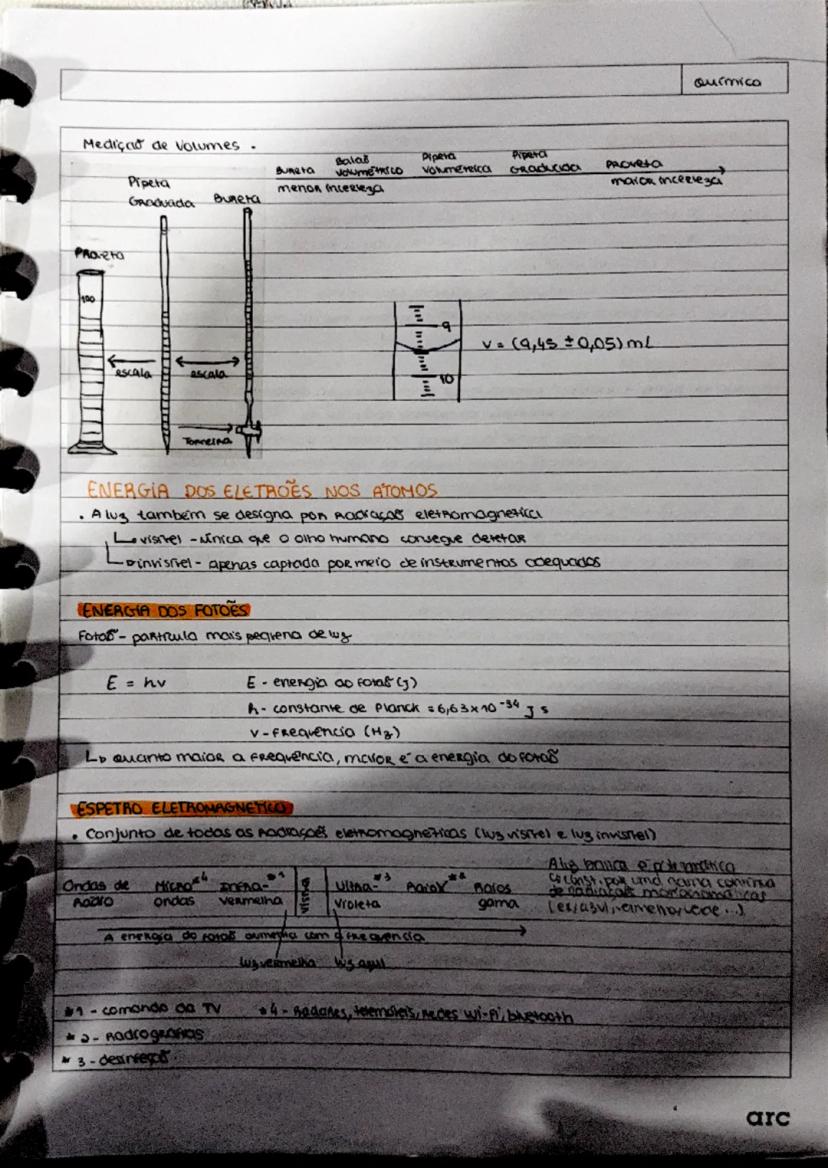 Química
Medição de Volumes.
Bureta Balão volumétrico Pipeta volumétrica Pipeta Graduada Proveta
menor incerteza maior incerteza
Pipeta Graduada Bureta
Proveta
100
9
V = (9,45 ± 0,05) mL
escala escala
10
Torneira
ENERGIA DOS ELETRÕES NOS ATOMOS
. A luz também se designa por Radiação eletromagnética
visível - única que o olho humano consegue detetar
invisível - apenas captada por meio de instrumentos adequados
ENERGIA DOS FOTÕES
Fotão - partícula mais pequena de luz
E = hv E - energia do fotão (J)
h - constante de Planck = 6,63x10⁻³⁴ J s
v - Frequência (Hz)
Quanto maior a Frequência, maior é a energia do Fotão
ESPETRO ELETROMAGNETICO
. Conjunto de todas as Radiações eletromagnéticas (luz visível e luz invisível)
A luz branca é policromática
Ondas de Rádio Micro*4 ondas Infra-*1 vermelha visível Ultra-*3 violeta RaioX*2 Raios gama
const. por uma gama contínua
de radiações monocromáticas
(ex: azul, amarelo, verde ...)
A energia do fotão aumenta com a frequência
luz vermelha luz azul
*1 - comando da TV *4 - Radares, telemóveis, redes Wi-Fi, bluetooth
*2 - Radiografias
*3 - desinfeção
arc